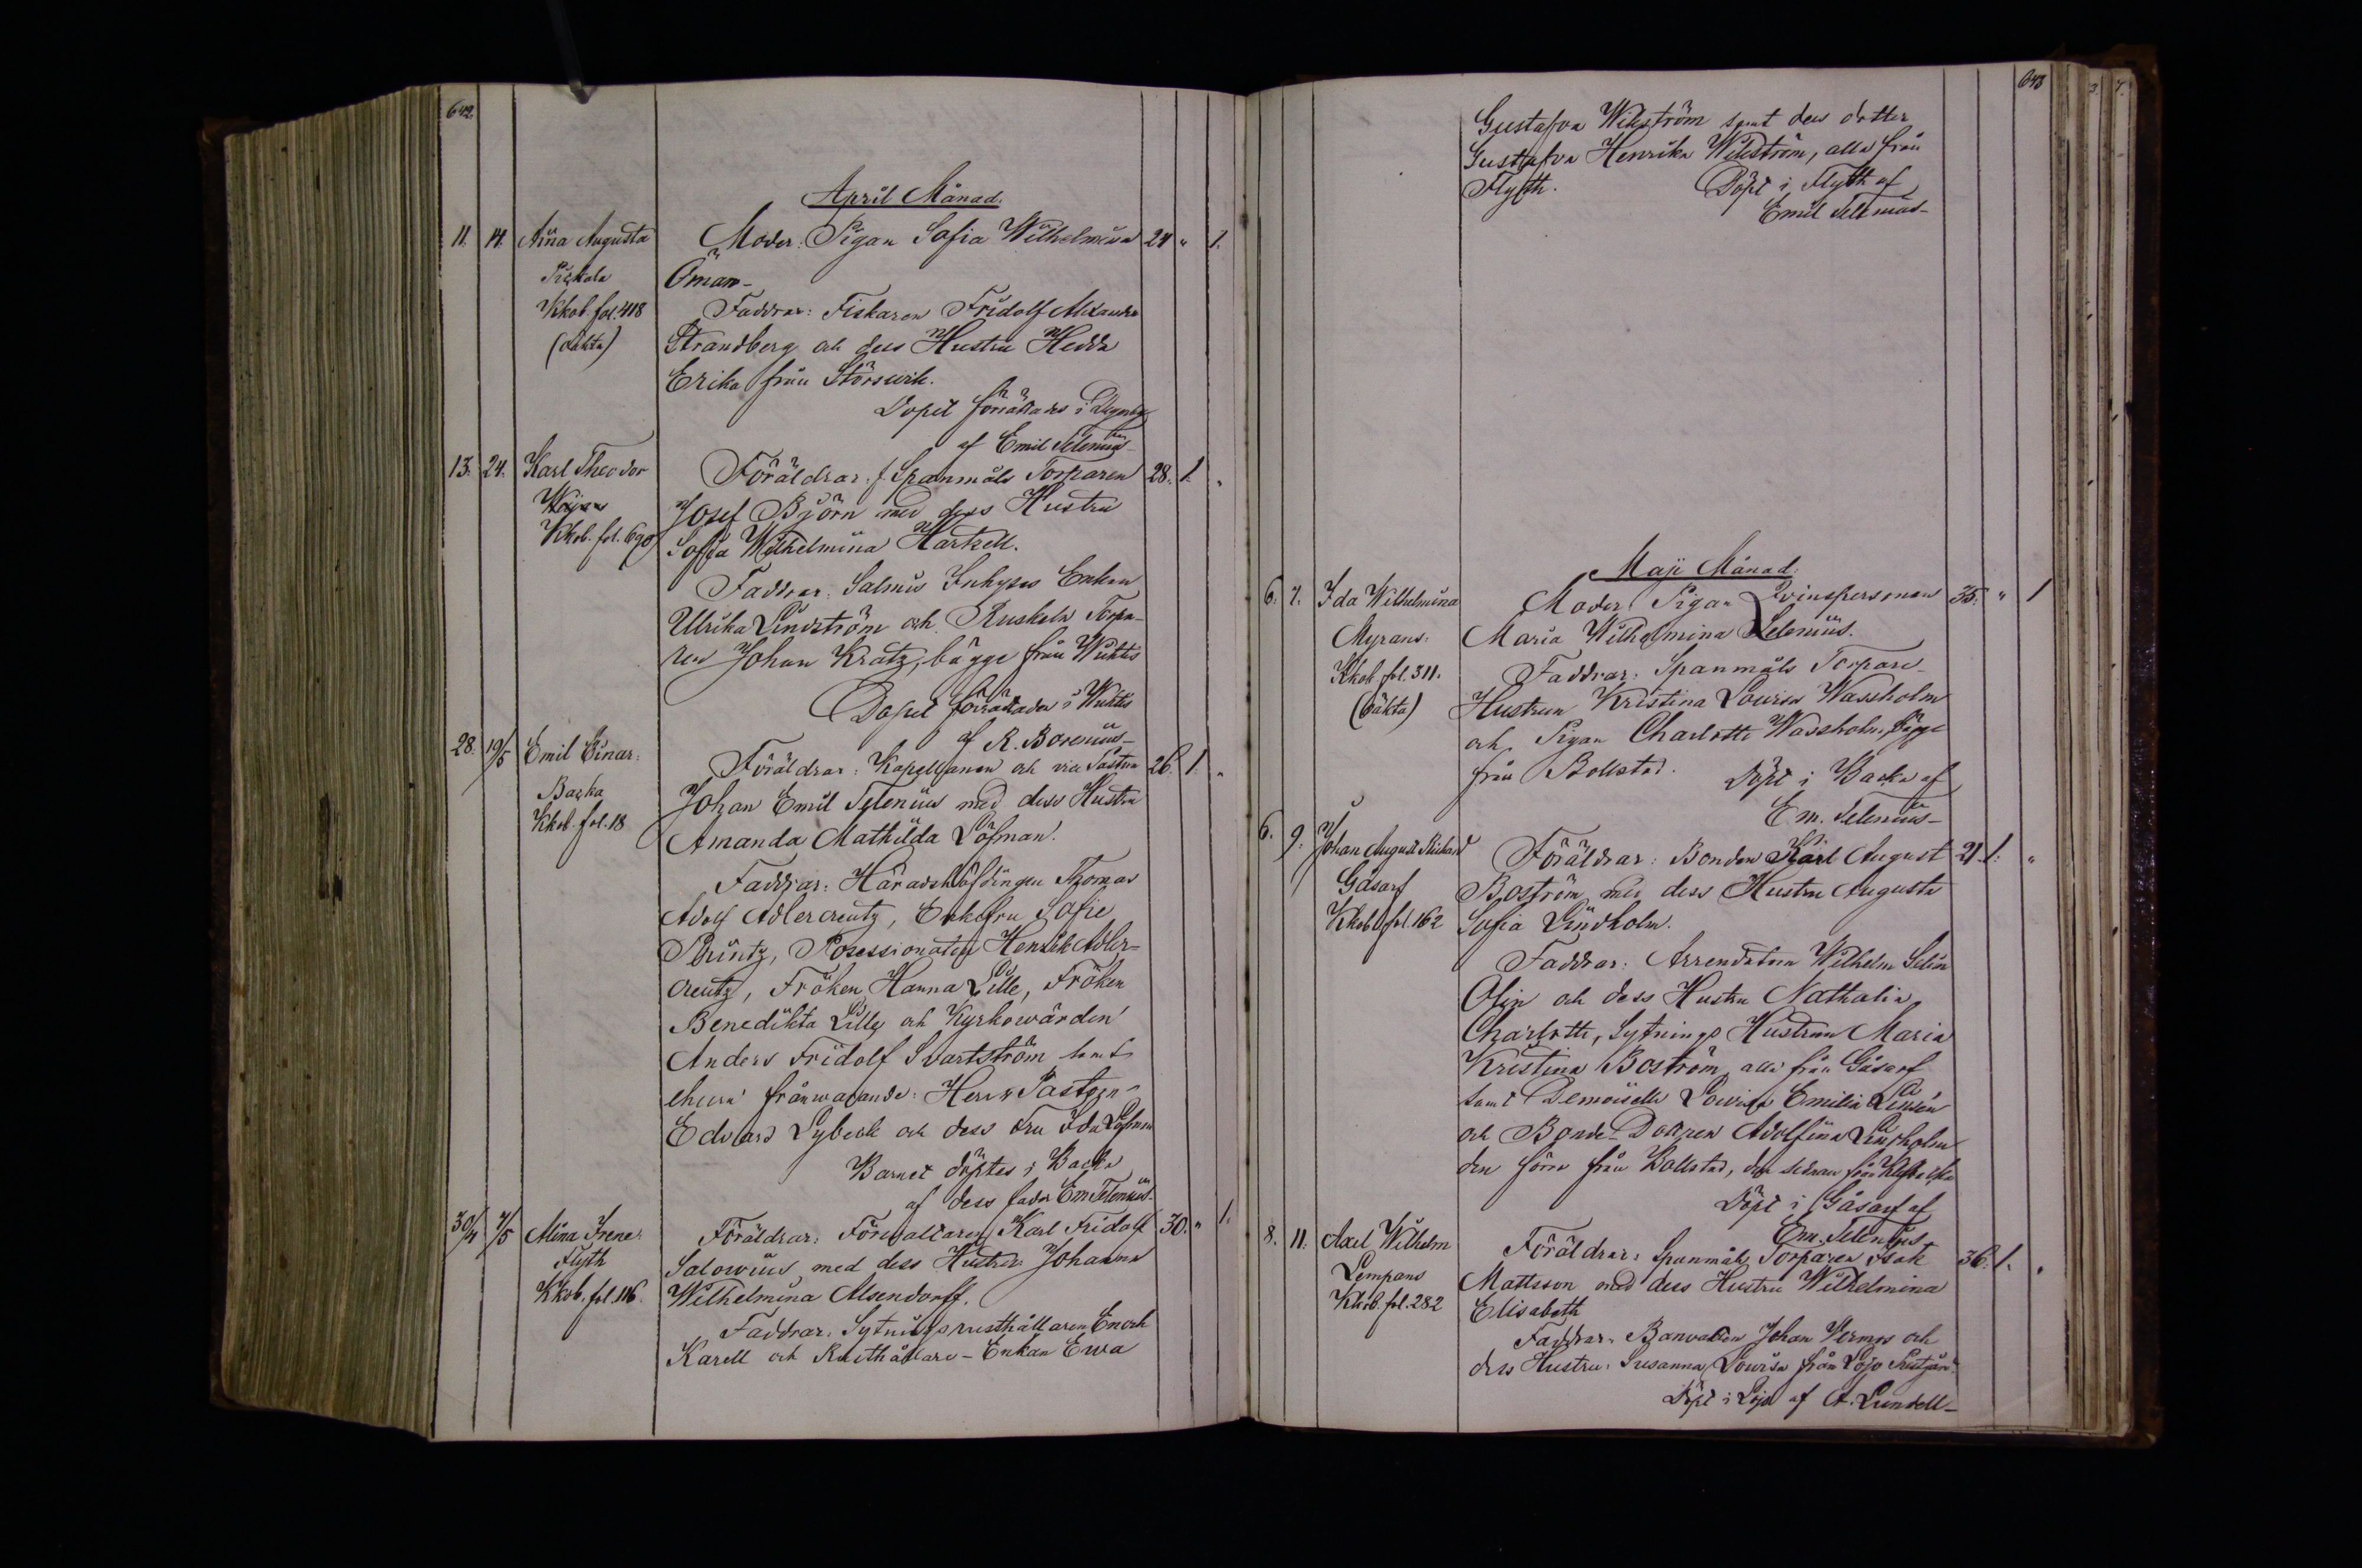 642.
April Månad.
11. 14. Aina Augusta Moder: Pigan Sofia Wilhelmina 24 " 1.
Pickala Öman-
Kkob. fol. 418 Faddrar: Fiskaren Fridolf Alexander
(oäkta) Strandberg och dess Hustru Hedda
Erika från Störswik.
Dopet förrättades i
af Emil Telenius-
13. 24. Karl Theodor Föräldrar: f. Spanmåls Torparen 28. 1. "
Josef Björn med dess Hustru
Kkob. fol. 690 Sofia Wilhelmina Hartzell.
Faddrar: Salmis Inhyses Enkan
Ulrika Lindström och Ruskela Torpa-
ren Johan Kratz, bägge från Wichtis
Dopet förrättades i Wichtis
af R. Borenius-
28. 19/5 Emil Einar: Föräldrar: Kapellanen och vice Pastorn 26. 1. "
Backa Johan Emil Telenius med dess Hustru
Kkob. fol. 18 Amanda Mathilda Löfman.
Faddrar: Häradshöfdingen Thomas
Adolf Adlercreutz, Enkefru Sofie
Printz, Possessionaten Henrik Adler-
creutz, Fröken Hanna Lille, Fröken
Benedikta Lille och Kyrkowärden
Anders Fridolf Svartström samt
ehuru frånwarande: Herr Pastorn
Edvard Lybeck och dess Fru Ida Löfman
Barnet döptes i Backa
af dess fader Em. Telenius-
30/4 7/5 Mina Irene: Föräldrar: Förvaltaren Karl Fridolf 30. " 1.
Flyth Salowius med dess Hustru Johanna
Kkob. fol. 116. Wilhelmina Alsendorff.
Faddrar: Sytningsrusthållaren Enoch
Karell och Rusthållare-Enkan Ewa
643
Gustafva Wikström samt dess dotter
Gustafva Henrika Wikström, alla från
Flyth. Döpt i Flyth af
Emil Telenius-
Maji Månad.
6. 7. Ida Wilhelmina Moder: Pigan Qvinspersonen 35. " 1
Myrans. Maria Wilhelmina Selenius.
Kkob. fol. 311. Faddrar: Spanmåls Torpare-
(oäkta) Hustrun Kristina Lovisa Wassholm
och Pigan Charlotte Wassholm, bägge
från Bollstad. Döpt i Backa af
Em. Telenius-
6. 9. Johan August Rickard Föräldrar: Bonden Karl August 21. 1. "
Gåsarf Boström med dess Hustru Augusta
Kkob. fol. 162 Sofia Lindholm.
Faddrar: Arrendatorn Wilhelm Selim
Olin och dess Hustru Nathalia
Charlotte, Sytnings Hustrun Maria
Kristina Boström, alla från Gåsarf
samt Demoiselle Lovisa Emilia
och Bonde-Dottren Adolfina Lindholm
den förra från Bollstad, den sednare från
Döpt i Gåsarf af
Em. Telenius-
8. 11. Axel Wilhelm Föräldrar: Spanmåls Torparen Isak 36. 1. "
Lempans Mattsson med dess Hustru Wilhelmina
Kkob. fol. 282 Elisabeth
Faddrar: Banvakten Johan och
dess Hustru Susanna Lovisa från Lojo
Döpt i Lojo af A. Lundell-